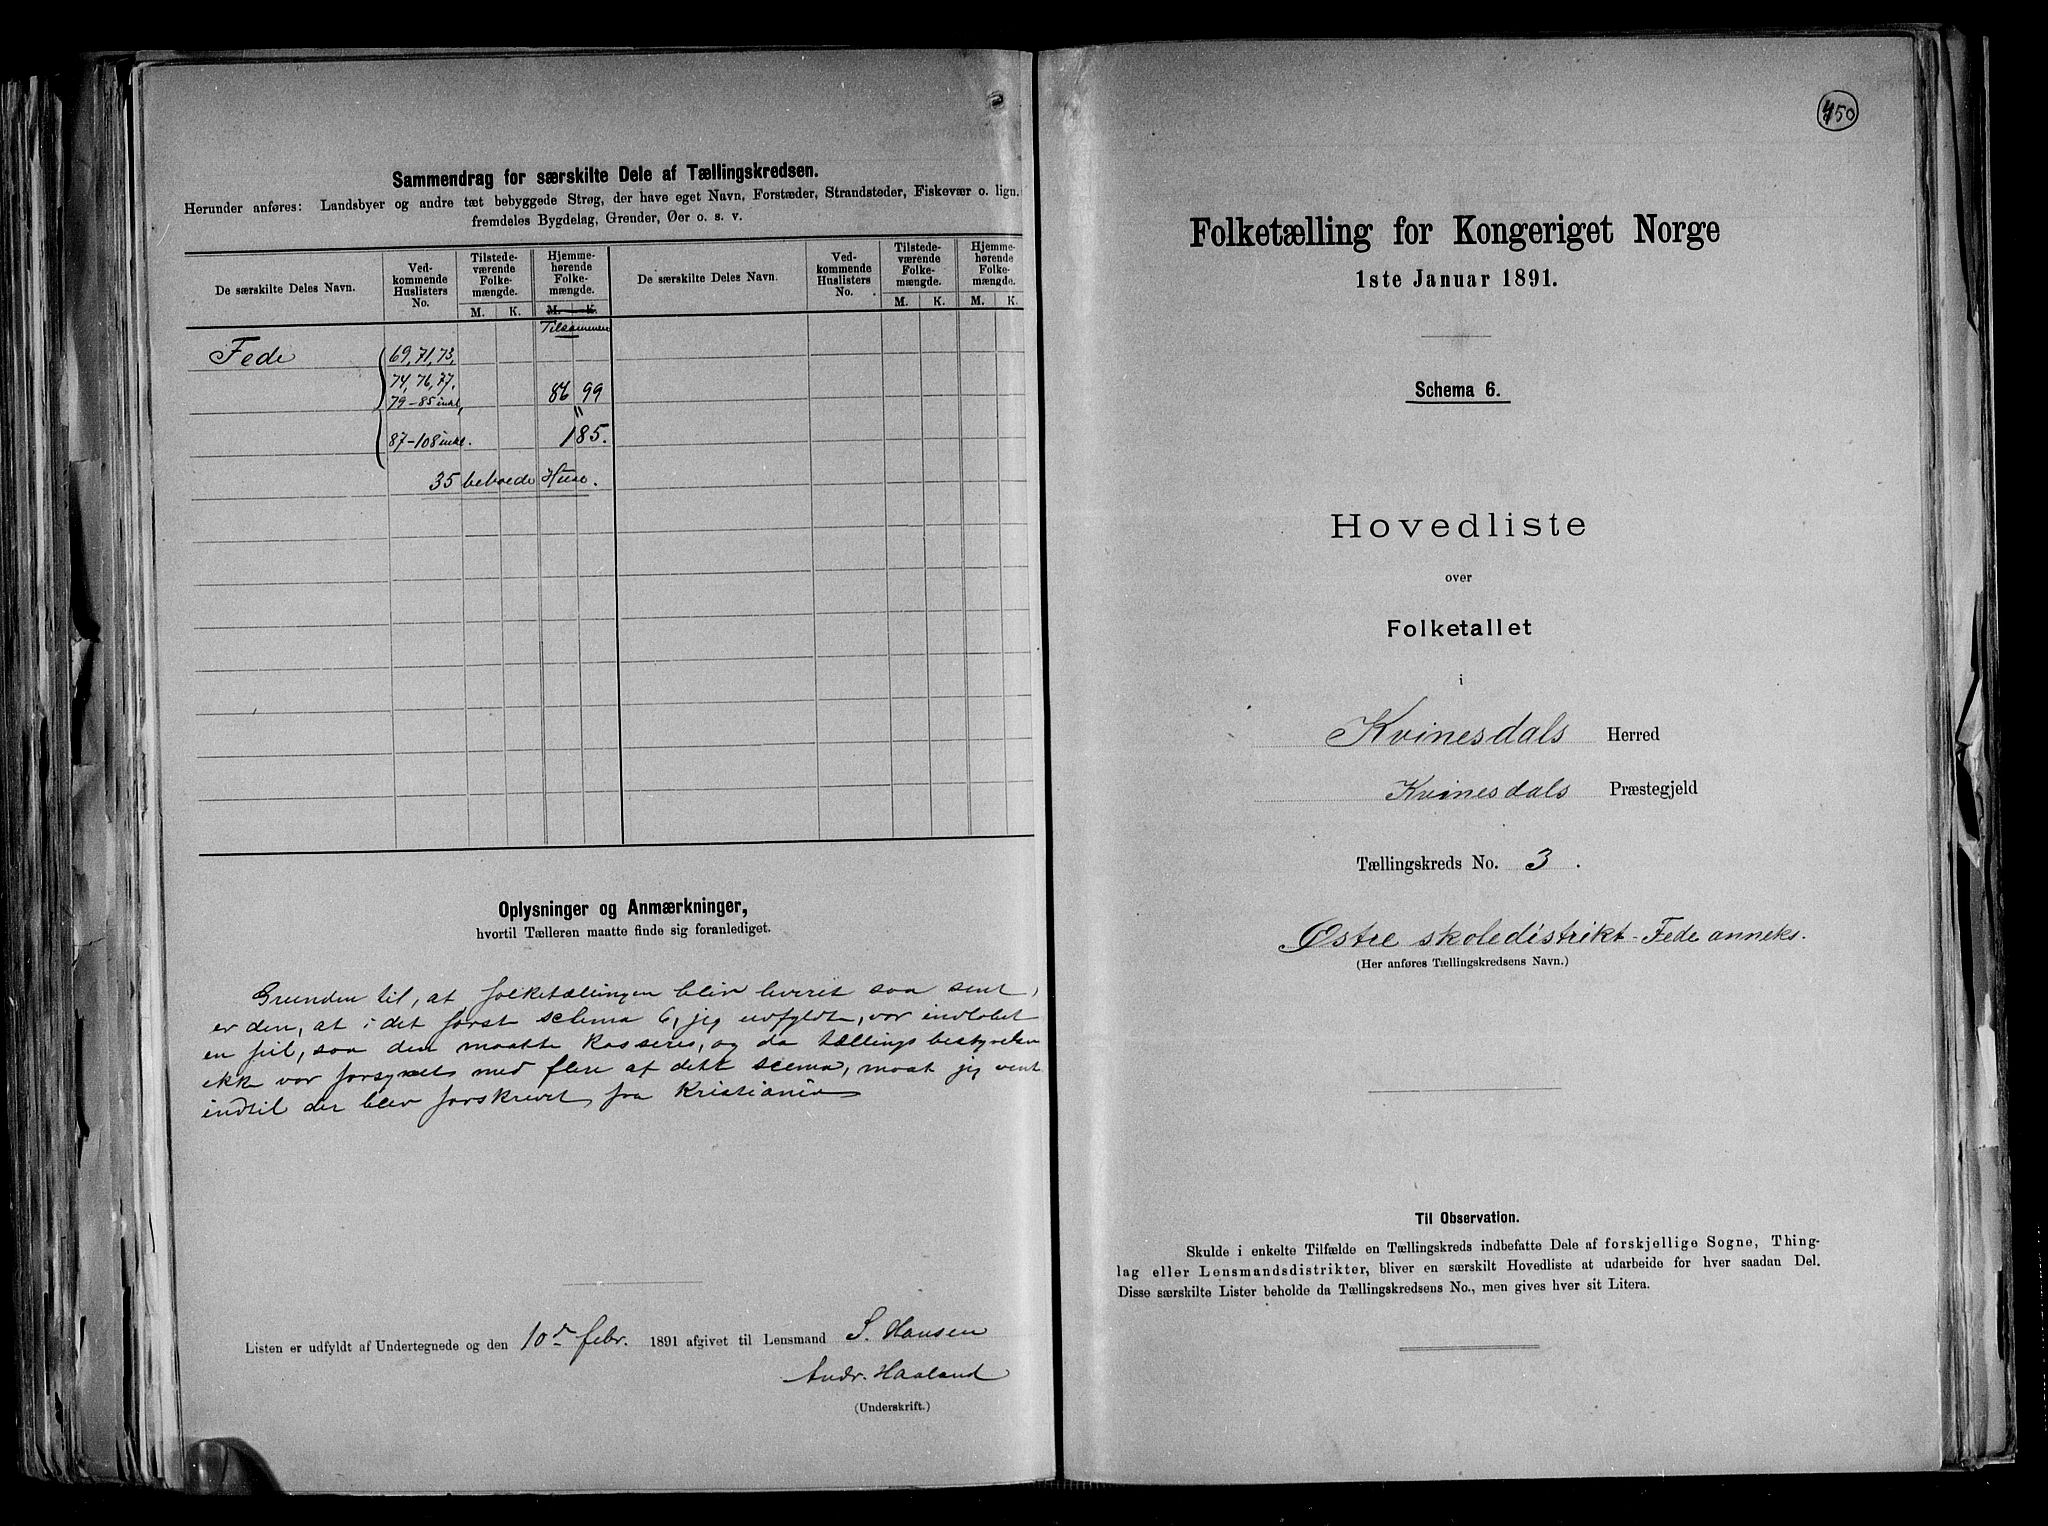 Sammendrag for særskilte Dele af Tællingskredsen.
Herunder anføres: Landsbyer og andre tæt bebyggede Strøg, der have eget Navn, Forstæder, Strandsteder, Fiskevær o. lign.
fremdeles Bygdelag, Grender, Øer o. s. v.
De særskilte Deles Navn.
Ved-
kommende
Huslisters
No.
Tilstede-
værende
Folke-
mængde.
M. K.
Hjemme-
hørende
Folke-
mængde.
M. K.
De særskilte Deles Navn.
Ved-
kommende
Huslisters
No.
Tilstede-
værende
Folke-
mængde.
M. K.
Hjemme-
hørende
Folke-
mængde.
M. K.
Tilsammen
Fede 69, 71, 73,
74, 76, 77.
79-85 inkl, 86 99
"
87-108 inkl. 185.
35 beboede Huse.
Oplysninger og Anmærkninger,
hvortil Tælleren maatte finde sig foranlediget.
Grunden til, at folketællingen blev leveret saa sent,
er den, at i det først schema 6, jeg udfyldte, var indløbet
en feil, saa den maatte kasseres, og da tællingsbestyrelsen
ikk var forsynet med flere af dett scema, maat jeg vent
indtil der blev forskrevet fra Kristiania
Listen er udfyldt af Undertegnede og den 10de febr. 1891 afgivet til Lensmand S. Hansen
Andr. Haaland
(Underskrift.)
450
Folketælling for Kongeriget Norge
1ste Januar 1891.
Schema 6.
Hovedliste
over
Folketallet
i
Kvinesdals Herred
Kvinesdals Præstegjeld
Tællingskreds No. 3.
Østre skoledistrikt - Fede anneks.
(Her anføres Tællingskredsens Navn.)
Til Observation.
Skulde i enkelte Tilfælde en Tællingskreds indbefatte Dele af forskjellige Sogne, Thing-
lag eller Lensmandsdistrikter, bliver en særskilt Hovedliste at udarbeide for hver saadan Del.
Disse særskilte Lister beholde da Tællingskredsens No., men gives hver sit Litera.